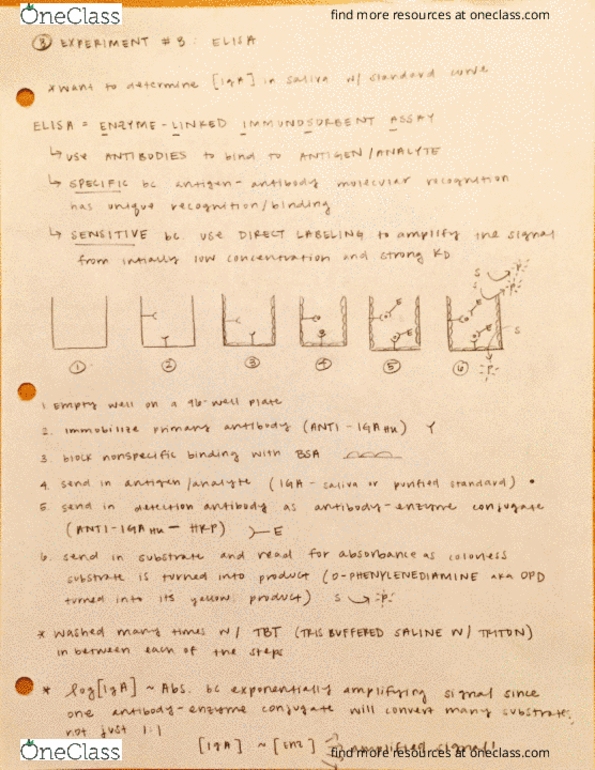 OneClass
find more resources at oneclass.com
③ EXPERIMENT #3: ELISA
* want to determine [IgA] in saliva w/ standard curve
ELISA = ENZYME-LINKED IMMUNOSORBENT ASSAY
↳ USE ANTIBODIES to bind to ANTIGEN/ANALYTE
↳ SPECIFIC bc antigen-antibody molecular recognition
has unique recognition/binding
↳ SENSITIVE bc. use DIRECT LABELING to amplify the signal
from intially low concentration and strong KD
S P
S P
E E
E E S
P
① ② ③ ④ ⑤ ⑥
1 Empty well on a 96-well plate
2. immobilize primary antibody (ANTI-IGA HU) Y
3. block nonspecific binding with BSA
4. send in antigen/analyte (IGA-saliva or purified standard) •
5. send in detection antibody as antibody-enzyme conjugate
(ANTI-IGA HU - HRP) >-E
6. send in substrate and read for absorbance as colorless
substrate is turned into product (O-PHENYLENEDIAMINE aka OPD
turned into its yellow product) S P
* washed many times w/ TBT (TRIS BUFFERED SALINE W/ TRITON)
in between each of the steps
* log[IgA] ~ Abs. bc exponentially amplifying signal since
one antibody-enzyme conjugate will convert many substrates,
not just 1:1
[IgA] ~ [ENZ] → amplified signal!
OneClass
find more resources at oneclass.com